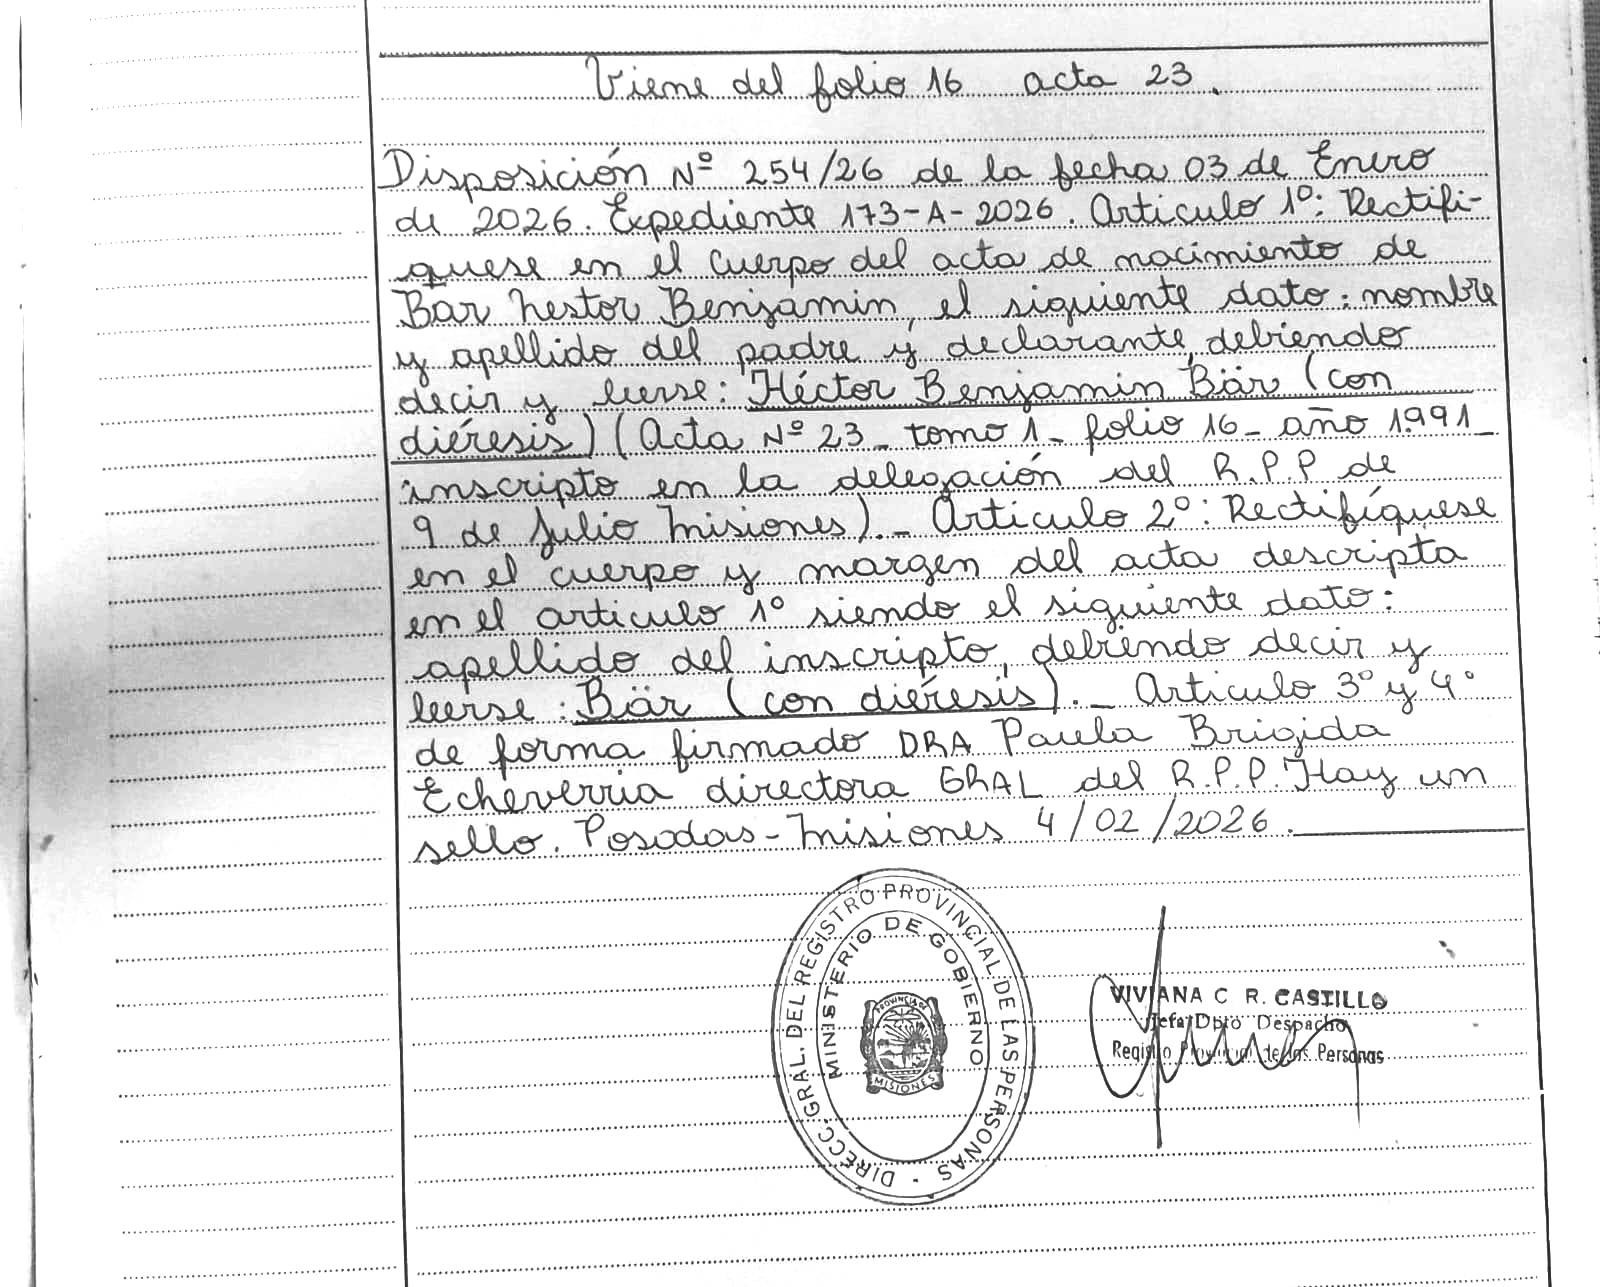 Viene del folio 16 acta 23.
Disposición Nº 254/26 de la fecha 03 de Enero
de 2026. Expediente 173-A-2026. Articulo 1º: Rectifi-
quese en el cuerpo del acta de nacimiento de
Bar Nestor Benjamin, el siguiente dato: nombre
y apellido del padre y declarante, debiendo
decir y leerse: Héctor Benjamin Bär (con
diéresis) (Acta Nº 23_ tomo 1_ folio 16_ año 1991_
inscripto en la delegación del R.P.P de
9 de Julio Misiones)._ Articulo 2º: Rectifíquese
en el cuerpo y margen del acta descripta
en el articulo 1º siendo el siguiente dato:
apellido del inscripto, debiendo decir y
leerse: Bär (con diéresis)._ Articulo 3º y 4º
de forma firmado DRA Paula Brigida
Echeverria directora GRAL del R.P.P. Hay un
sello. Posadas-Misiones 4/02/2026.
DIRECC. GRAL. DEL REGISTRO PROVINCIAL DE LAS PERSONAS
MINISTERIO DE GOBIERNO
PROVINCIA DE
MISIONES
VIVIANA C R. CASTILLO
Jefa Dpto Despacho
Registro Provincial de las Personas